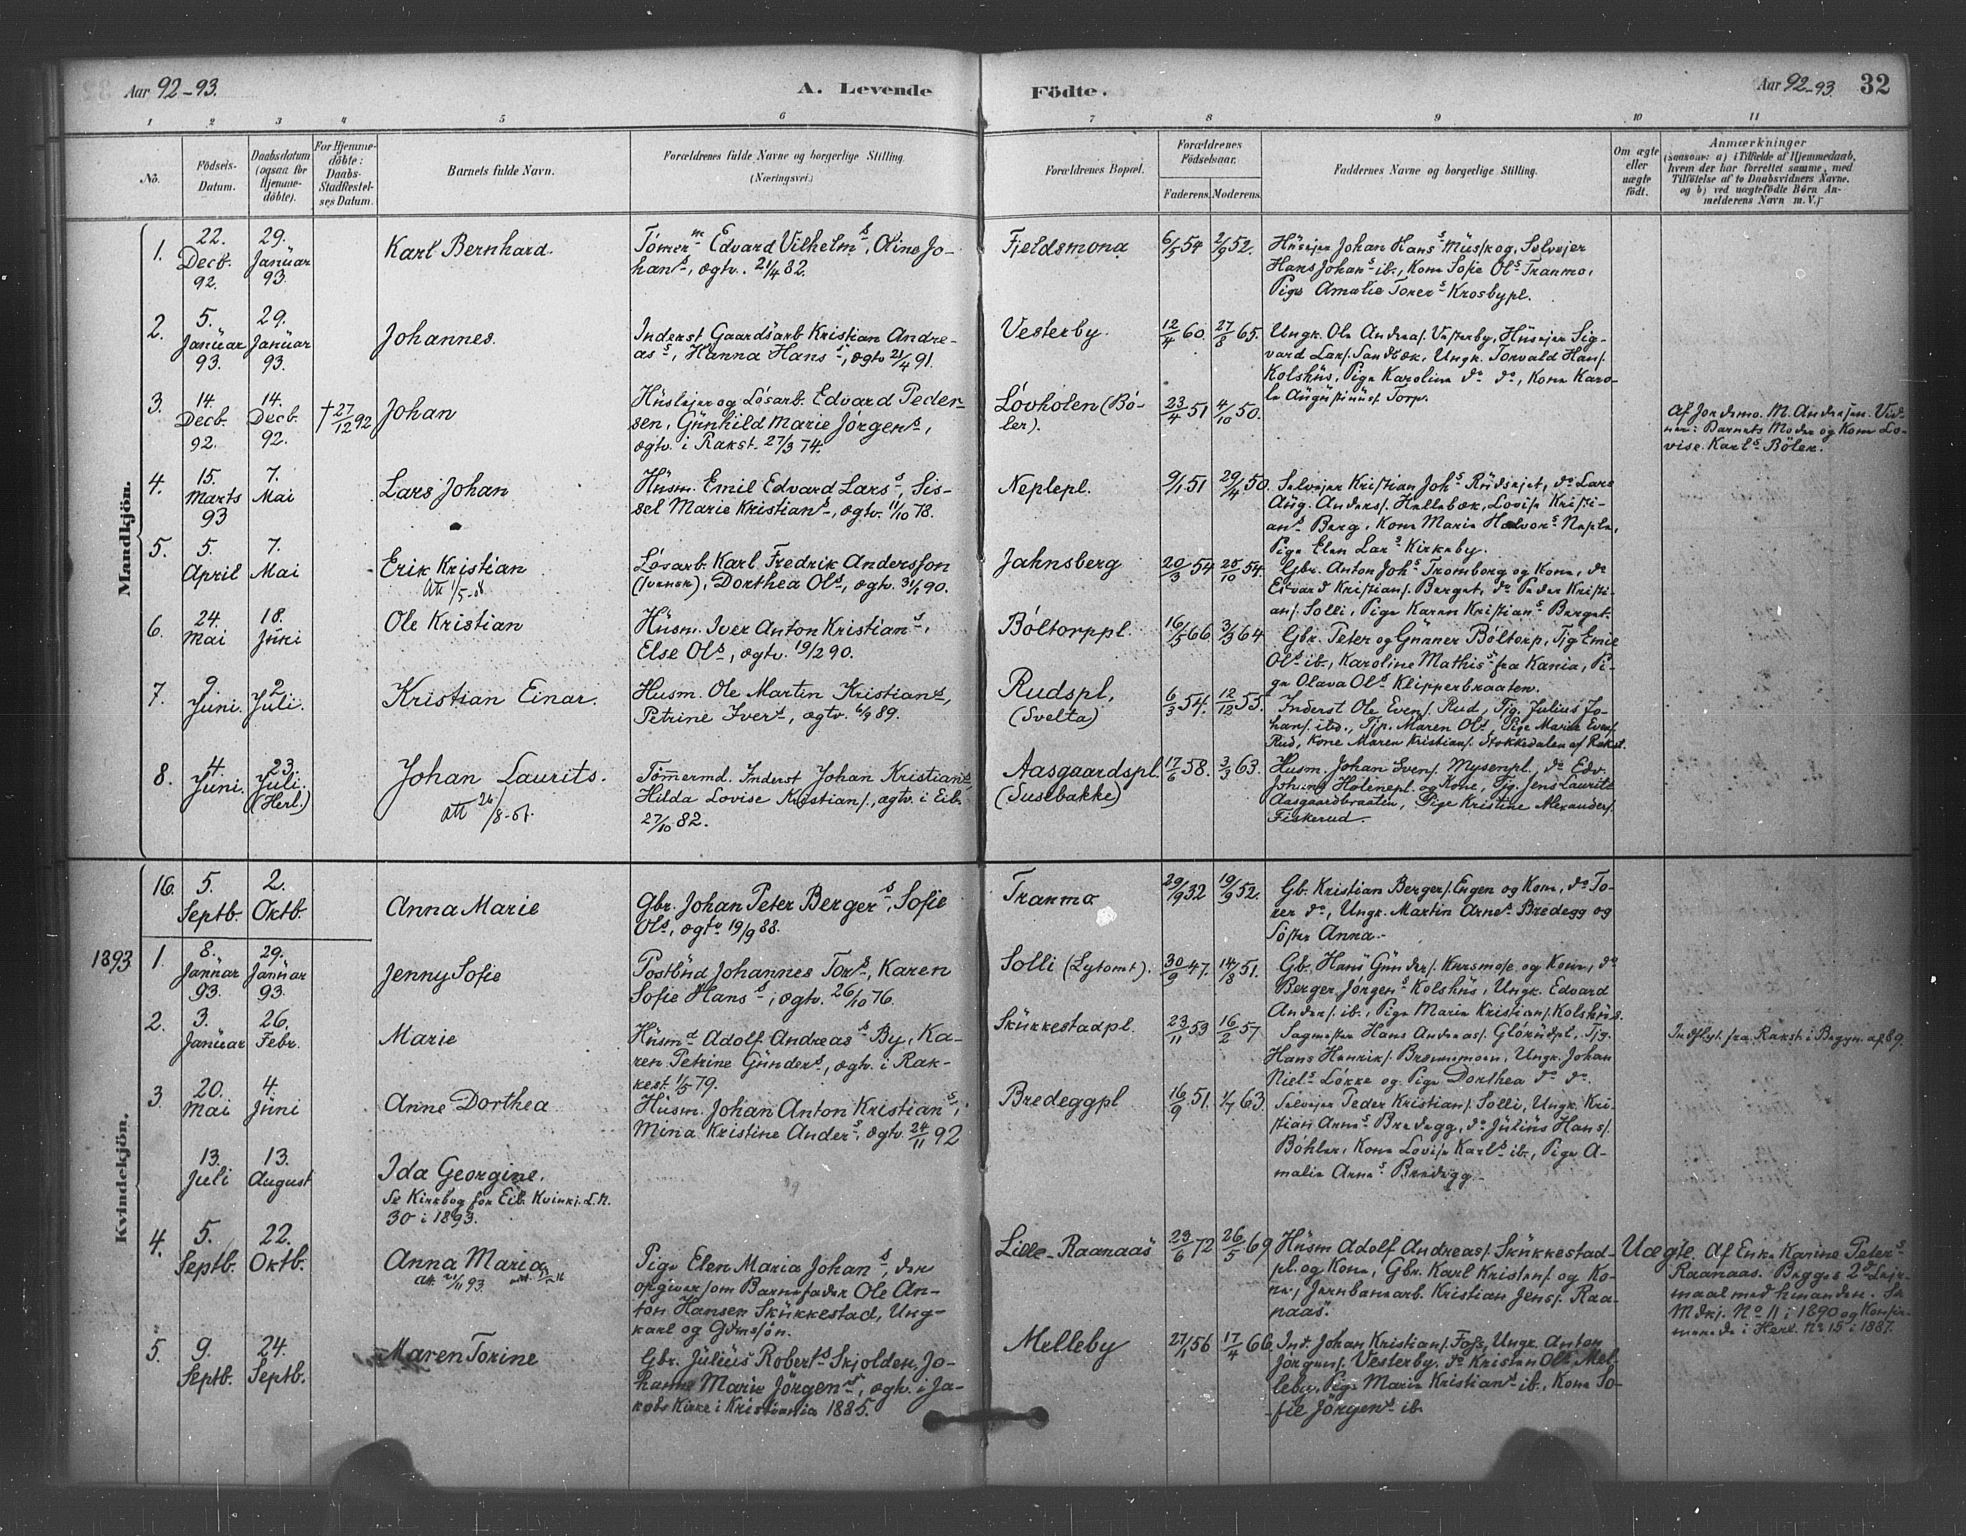 Aar 92-93.
A. Levende
Födte.
Aar 92-93.
32
1 2 3 4 5 6 7 8 9 10 11
No.
Födsels-
Datum.
Daabsdatum
(ogsaa for
Hjemme-
döbte).
For Hjemme-
döbte:
Daabs-
Stadfæstel-
ses Datum.
Barnets fulde Navn.
Forældrenes fulde Navne og borgerlige Stilling.
(Næringsvei.)
Forældrenes Bopæl.
Forældrenes
Födselsaar.
Faderens. Moderens.
Faddernes Navne og borgerlige Stilling.
Om ægte
eller
uægte
födt.
Anmærkninger
(saasom: a) i Tilfælde af Hjemmedaab,
hvem der har forrettet samme, med
Tilföielse af to Daabsvidners Navne.
og b) ved uægtefödte Börn An-
melderens Navn m. V.)
Mandkjön.
1.
22.
Decb.
92.
29.
Januar
93.
Karl Bernhard.
Tömerm Edvard Vilhelms, Oline Jo-
hans, ægtv. 21/4 82.
Fjeldsmona
6/5 54
2/9 52.
Huseier Johan Hans Musk og, Selveier
Hans Johans ib., Kone Sofie Ols Tranmo,
Pige Amalie Torers Krosbypl.
2.
5.
Januar
93.
29.
Januar
93.
Johannes.
Inderst Gaardsarb Kristian Andre-
as, Hanna Hans, ægtv 21/4 91.
Vesterby.
12/4 60.
27/8 65.
Ungk. Ole Andreas. Vesterby, Huseier Sig-
vard Lars. Sandbæk, Ungk. Torvald Hans.
Kolshus, Pige Karoline do do, Kone Karo-
le Augustinus. Torp.
3.
14.
Decb.
92.
14.
Decb.
92.
† 27/12 92
Johan
Husleier og Lösarb. Edvard Peder-
sen, Gunhild Marie Jörgens,
ægtv. i Rakst. 27/3 74.
Lövholen (Bö-
ler).
23/4 51
4/10 50.
Af Jordemo. M. Andersen. Vid-
ner: Barnets Moder og Kone Lo-
vise Karls Böler.
4.
15.
Marts
93
7.
Mai
Lars Johan
Husm. Emil Edvard Lars, Sis-
sel Marie Kristians, ægtv. 11/10 78.
Neplepl.
9/1 51
29/4 50.
Selveier Kristian Johs Rudseiet, do Lars
Aug. Anders. Hellebæk, Lovise Kristi-
ans Berg, Kone Marie Halvors Neple,
Pige Elen Lars Kirkeby.
5.
5.
April
7.
Mai
Erik Kristian
Att 1/5-08
Lösarb. Karl Fredrik Andersson
(svensk), Dorthea Ols, ægtv. 31/1 90.
Jahnsberg
20/3 54
25/10 54.
Gbr. Anton Johs Tromborg og Kone, do
Edvard Kristians. Berget, do Peder Kristi-
ans. Solli, Pige Karen Kristians Berget.
6.
24.
Mai
18.
Juni
Ole Kristian
Husm. Iver Anton Kristians,
Else Ols, ægtv. 19/2 90.
Böltorppl.
16/5 66
3/3 64
Gbr. Peter og Gunner Böltorp, Tjg Emil
Ols ib., Karoline Mathis fra Kania, Pi-
ge Olava Ols Klipperbraaten.
7.
9
Juni.
2
Juli.
Kristian Einar.
Husm. Ole Martin Kristians,
Petrine Ivers, ægtv. 6/9 89.
Rudspl.
(Svelta)
6/3 54.
12/12 53.
Inderst Ole Evens. Rud, Tjg. Julius Jo-
hans. ibd., Tjp. Maren Ols, Pige Marie Evens.
Rud, Kone Maren Kristians. Stokkedalen af Rakst.
8.
4
Juni.
23.
Juli.
(Herl.)
Johan Laurits.
Tömermd. Inderst Johan Kristians,
Hilda Lovise Kristians., ægtv. i Eib.
27/10 82.
Aasgaardspl.
(Susebakke)
17/6 58.
3/3 63.
Husm. Johan Svens. Mysenpl., do Edv.
Holenepl. og Kone, Tjg. Jens Laurits
Aasgaardbraaten, Pige Kristine Alexanders.
Fiskerud.
Kvindekjön.
16.
5.
Septb.
2.
Oktb.
Anna Marie
Gbr. Johan Peter Bergers, Sofie
Ols, ægtv 19/9 88.
Tranmo
29/9 32
19/9 52.
Gb. Kristian Bergers. Engen og Kone, do To-
rer do, Ungk. Martin Arnes Bredegg og
Söster Anna.
1893
1.
8.
Januar
93.
29.
Januar
93.
Jenny Sofie
Postbud Johannes Tors, Karen
Sofie Hans, ægtv. 26/10 76.
Solli (Lytomt).
30/9 47.
14/8 51.
Gb. Hans Gunders. Kursmose og Kone, do
Berger Jörgens Kolshus, Ungk. Edvard
Anders. ib., Pige Marie Kristians. Kolshus.
2.
3.
Januar
26.
Febr.
Marie
Husmd Adolf Andreas By, Ka-
ren Petrine Gunders, ægtv. i Rak-
kest. 1/5 79.
Skukkestadpl.
23/11 53
16/2 57
Sagmester Hans Andreas. Glörudpl., Tjg.
Hans Henriks. Brönnimoen, Ungk. Johan
Niels Lökke og Pige Dorthea do do.
Indflyt. fra Rakst i Begyn. af 89.
3
20.
Mai
4.
Juni
Anne Dorthea
Husm. Johan Anton Kristians,
Mina Kristine Anders, ægtv. 24/11 92
Bredeggpl
16/9 51.
1/7 63.
Selveier Peder Kristians. Solli, Ungk. Kri-
stian Arnes Bredegg, do Julius Hans.
Böhler, Kone Lovise Karls ib., Pige A-
malie Arnes Bredegg.
13.
Juli
13.
August
Ida Georgine.
Se Kirkbog for Eib. Kvinkj. L.N.
30 i 1893.
4.
5.
Septb.
22.
Oktb.
Anna Maria
Pige Elen Maria Johans, der
opgiver som Barnefader Ole An-
ton Hansen Skukkestad, Ung-
karl og Gdmesön.
Lille-Raanaas
23/6 72
26/5 69
Husm Adolf Andreas. Skukkestad-
pl. og Kone, Gbr. Karl Kristens. og Ko-
ne, Jernbanearb. Kristian Jens. Raa-
naas.
Uægte.
Af Enke Karine Peters
Raanaas. Begges 2d Leir-
maal med hinanden. Se
Mdkj. No 11 i 1890 og Konfir-
merede i Herl. No 15 i 1887.
5.
9.
Septb.
24.
Septb.
Maren Torine
Gbr. Julius Roberts Skjolden, Jo-
hanne Marie Jörgens, ægtv. i Ja-
kobs Kirke i Kristiania 1885.
Melleby
27/1 56
17/4 66
Ind. Johan Kristians. Foss, Ungk. Anton
Jörgens. Vesterby, do Kristen Ols Mel-
leby, Pige Marie Kristians ib., Kone So-
fie Jörgens ib.